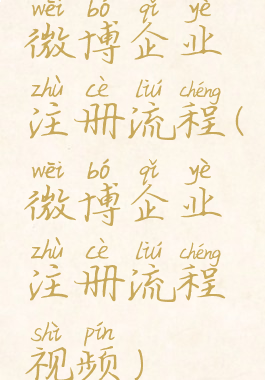 wēi bó qǐ yè
微博企业
zhù cè liú chéng
注册流程(
wēi bó qǐ yè
微博企业
zhù cè liú chéng
注册流程
shì pín
视频)